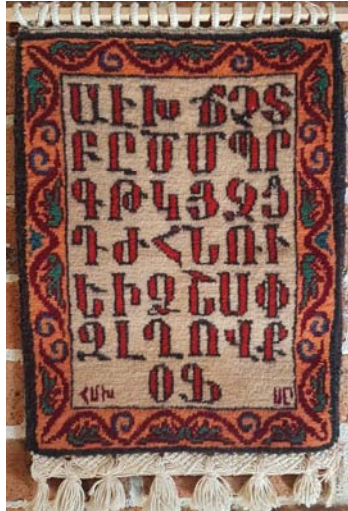 ԱԷԽՃՉՏ
ԲԸԾՄՊՐ
ԳԹԿՅՋՑ
ԴԺՀՆՌՒ
ԵԻՁՇՍՓ
ԶԼՂՈՎՔ
ՕՖ